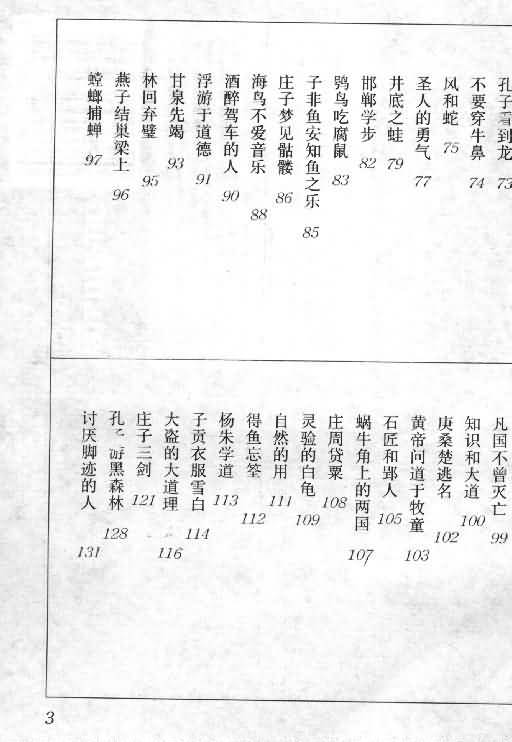 孔子看到龙 73
不要穿牛鼻 74
风和蛇 75
圣人的勇气 77
井底之蛙 79
邯郸学步 82
鸮鸟吃腐鼠 83
子非鱼安知鱼之乐 85
庄子梦见骷髅 86
海鸟不爱音乐 88
酒醉驾车的人 90
浮游于道德 91
甘泉先竭 93
林回弃璧 95
燕子结巢梁上 96
螳螂捕蝉 97
凡国不曾灭亡 99
知识和大道 100
庚桑楚逃名 102
黄帝问道于牧童 103
石匠和郢人 105
蜗牛角上的两国 107
庄周贷粟 108
灵验的白龟 109
自然的用 111
得鱼忘筌 112
杨朱学道 113
子贡衣服雪白 114
大盗的大道理 116
庄子三剑 121
孔子游黑森林 128
讨厌脚迹的人 131
3